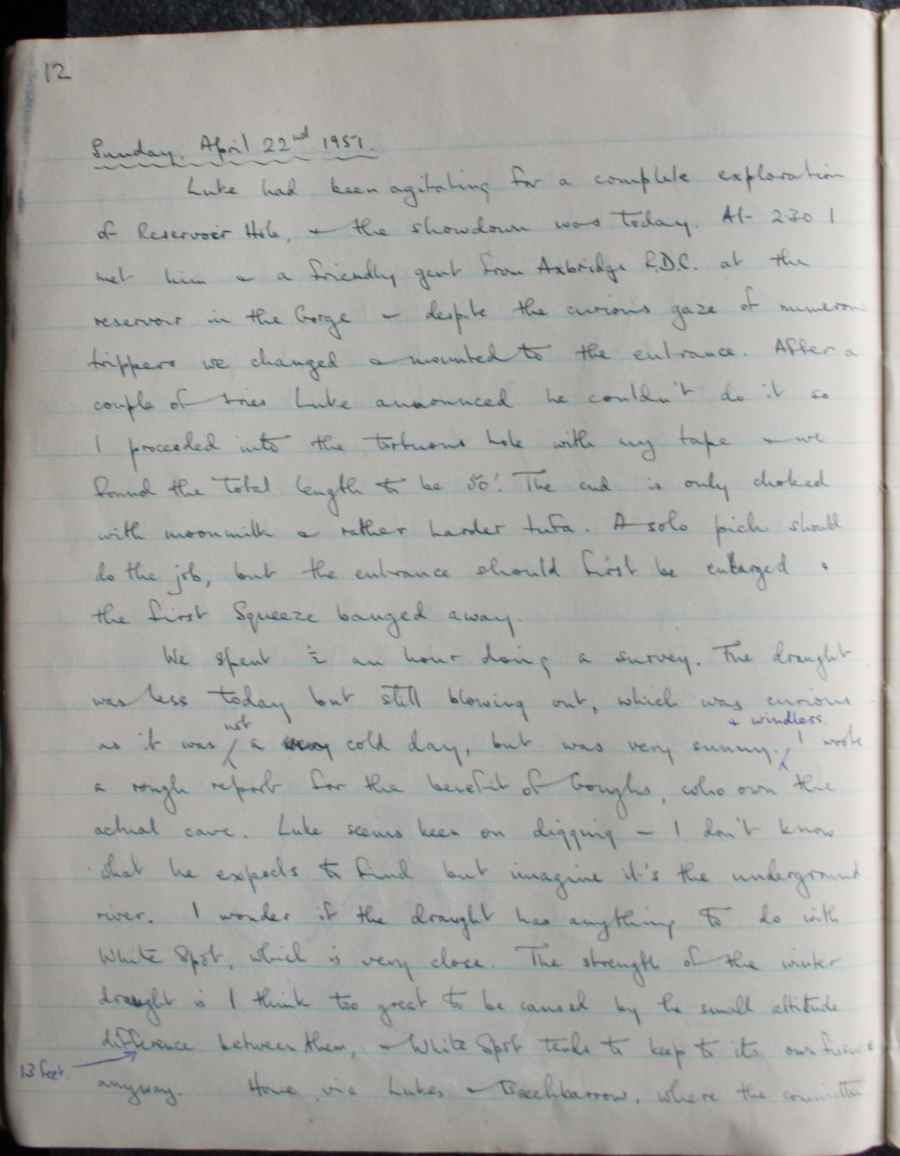 12
Sunday. April 22nd 1951.
Luke had been agitating for a complete exploration
of Reservoir Hole, & the showdown was today. At 2.30 I
met him & a friendly gent from Axbridge R.D.C. at the
reservoir in the Gorge & despite the curious gaze of numerous
trippers we changed & mounted to the entrance. After a
couple of tries Luke announced he couldn't do it so
I proceeded into the tortuous hole with my tape & we
found the total length to be 50'. The end is only choked
with moonmilk & rather harder tufa. A solo pick should
do the job, but the entrance should first be enlarged &
the first squeeze banged away.
We spent ½ an hour doing a survey. The draught
was less today but still blowing out, which was curious
as it was not a cold day, but was very sunny & windless. I wrote
a rough report for the benefit of Goughs, who own the
actual cave. Luke seems keen on digging — I don't know
what he expects to find but imagine it's the underground
river. I wonder if the draught has anything to do with
White Spot, which is very close. The strength of the winter
draught is I think too great to be caused by the small altitude
difference between them, & White Spot tends to keep to its own
13 feet
anyway. Home via Lukes & Beechbarrow, where the committee